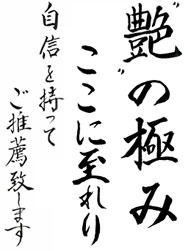 〝艶〟の極み
ここに至れり
自信を持って
ご推薦致します